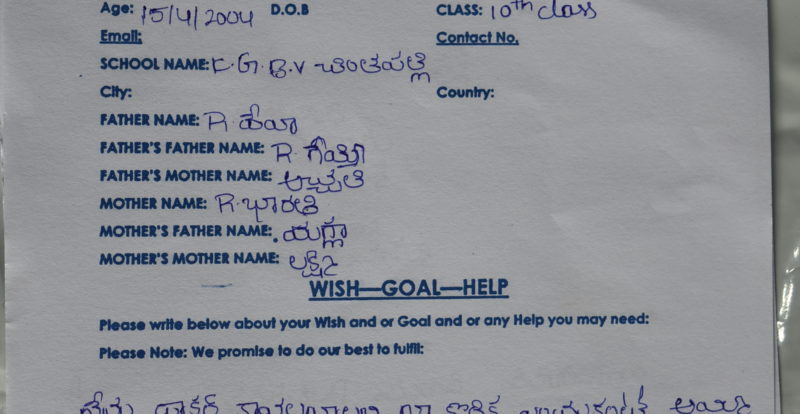 Age: 15/4/2004 D.O.B CLASS: 10th class
Email: Contact No.
SCHOOL NAME: K.G.B.V చింతపల్లి
City: Country:
FATHER NAME: R.
FATHER'S FATHER NAME: R.
FATHER'S MOTHER NAME:
MOTHER NAME: R. భారతి
MOTHER'S FATHER NAME:
MOTHER'S MOTHER NAME: లక్ష్మి
WISH—GOAL—HELP
Please write below about your Wish and or Goal and or any Help you may need:
Please Note: We promise to do our best to fulfil:
నేను డాక్టర్